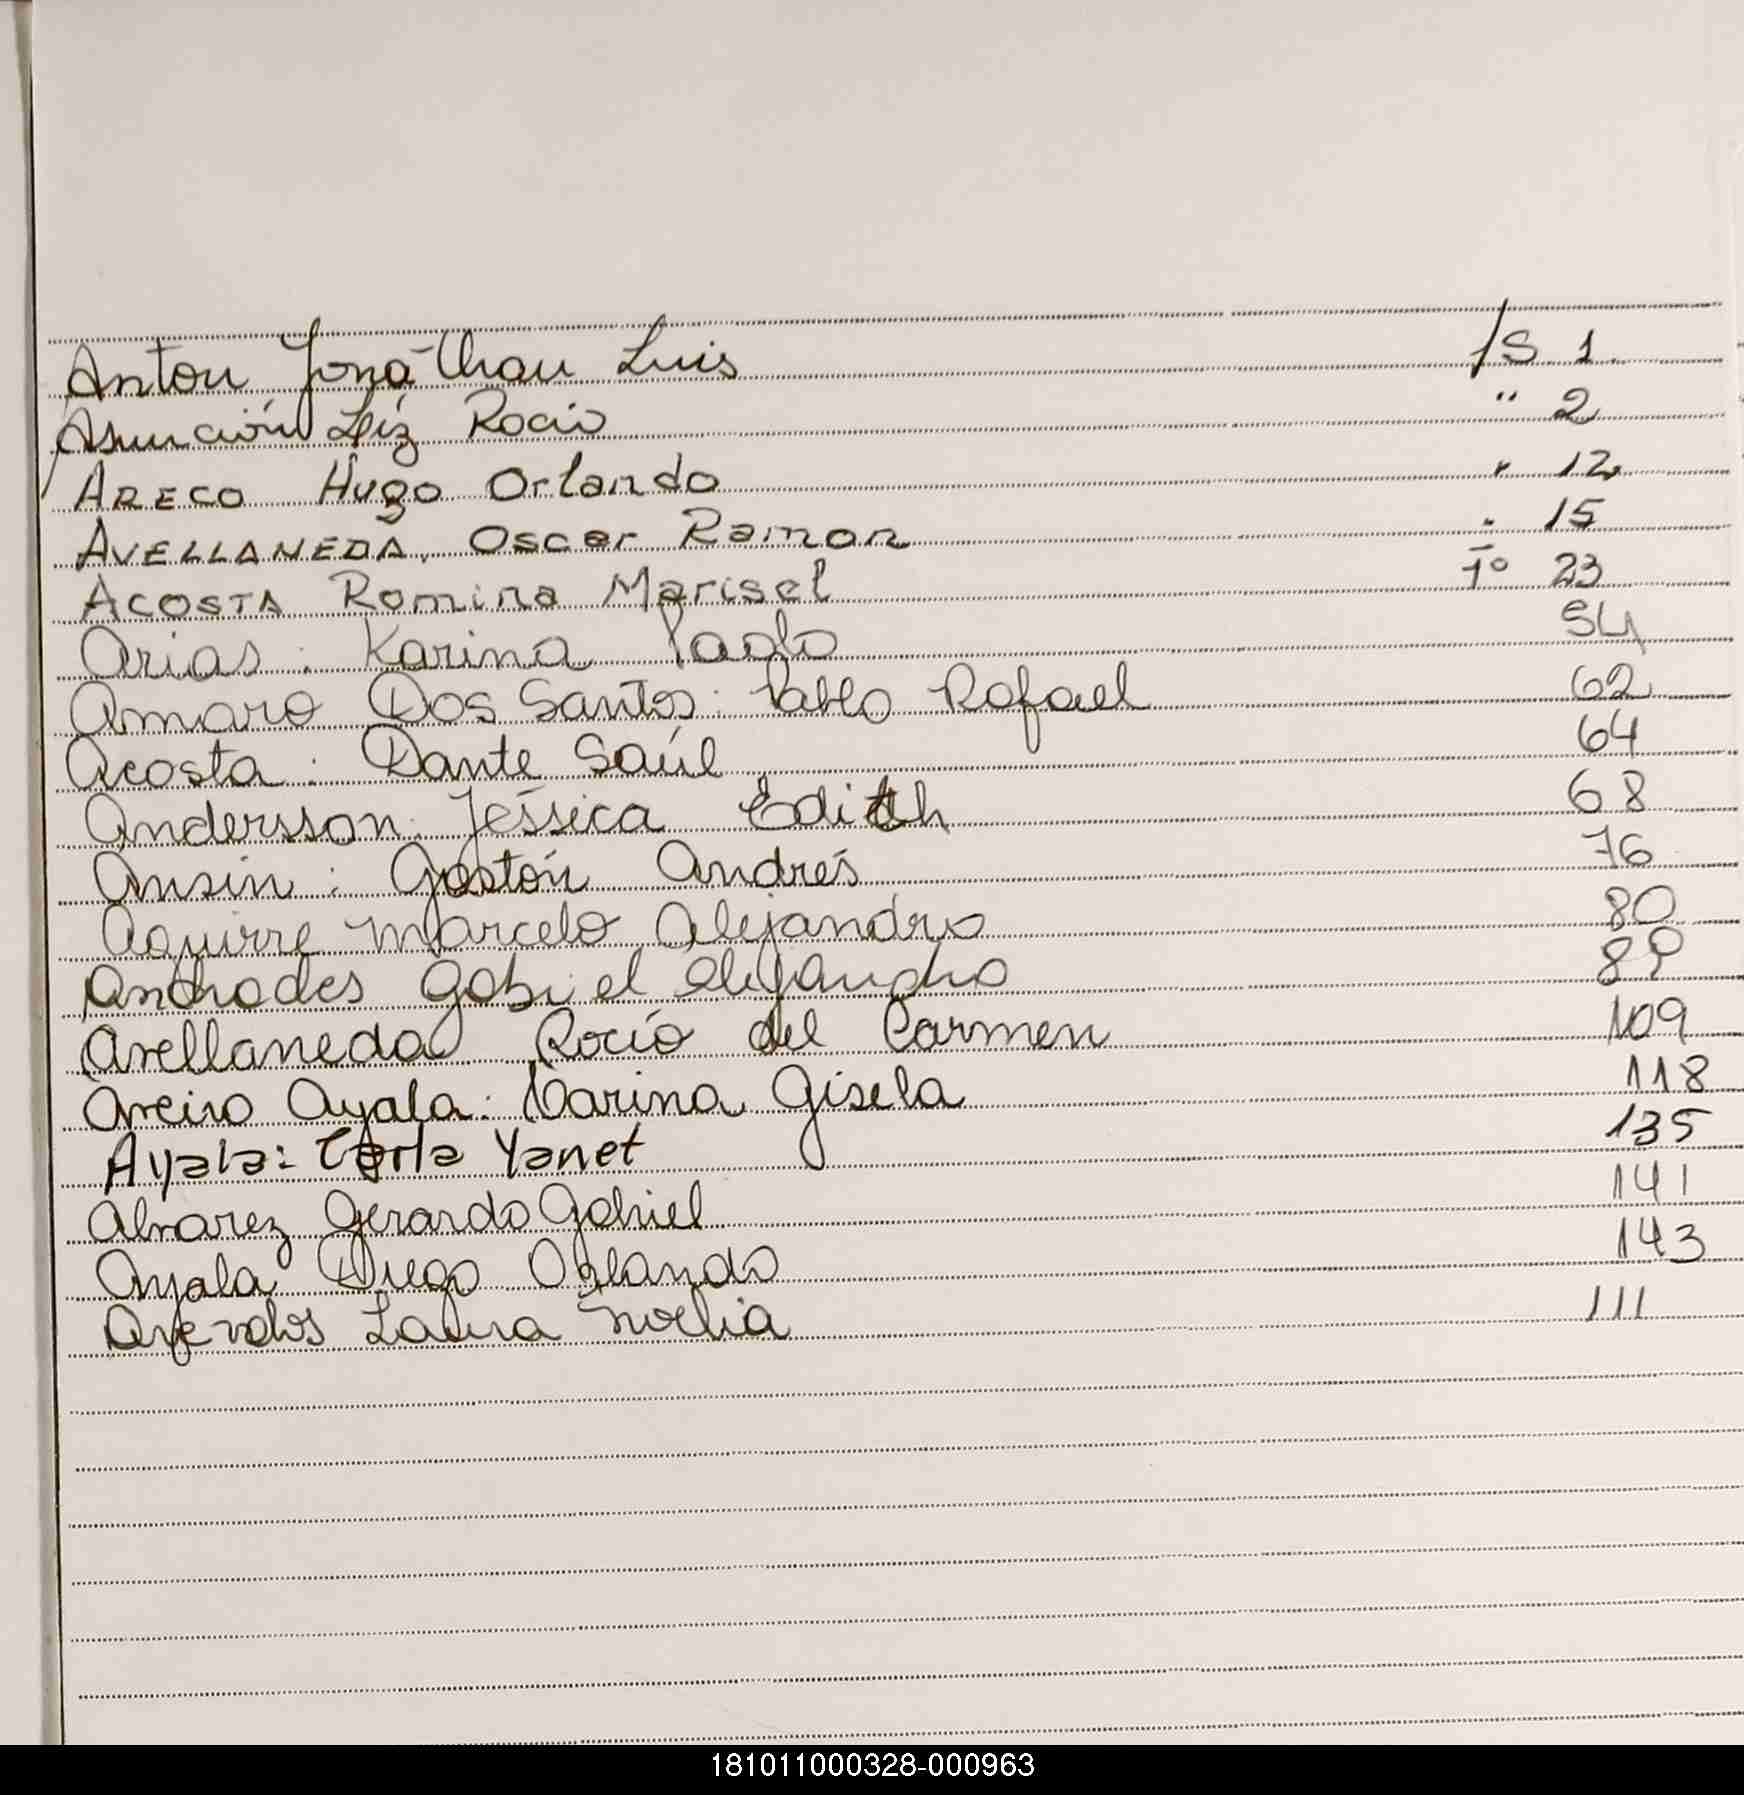 Anton Jonathan Luis /S 1
Asunción Liz Rocio " 2
ARECO Hugo Orlando " 12
AVELLANEDA. Oscar Ramon " 15
ACOSTA Romina Marisel Fº 23
Arias: Karina Paola 54
Amaro Dos Santos: Pablo Rafael 62
Acosta: Dante Saúl 64
Andersson: Jessica Edith 68
Ansin: Gastón Andrés 76
Aguirre Marcelo Alejandro 80
Andrades Gabriel Alejandro 89
Avellaneda Rocío del Carmen 109
Areiro Ayala: Karina Gisela 118
Ayala: Carla Yanet 135
Alvarez Gerardo Gabriel 141
Ayala Diego Orlando 143
Laura Noelia 111
181011000328-000963